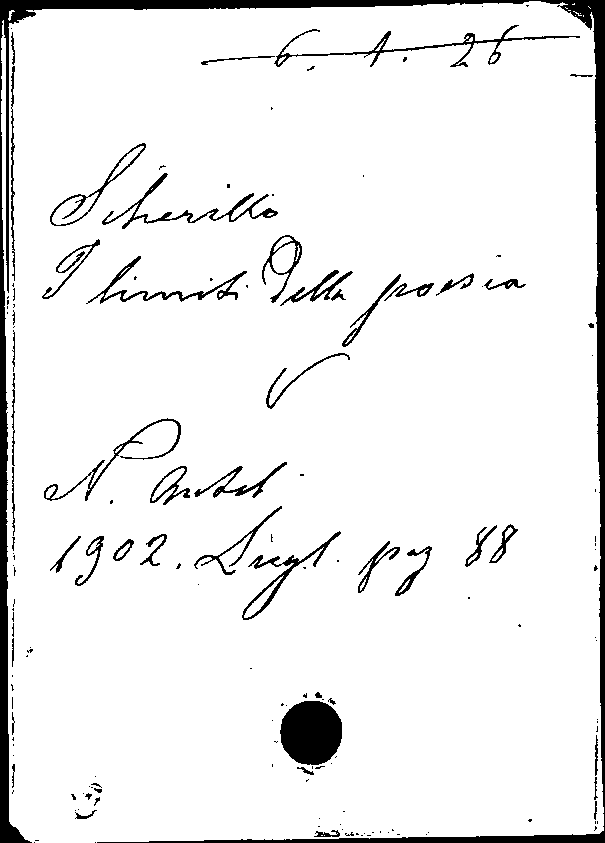 6. 1. 26
Scherillo
I limiti della poesia
V
N. Antol.
1902. Lugl. pag 88